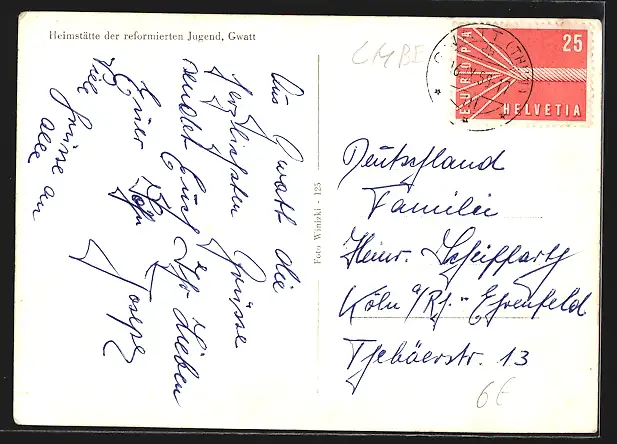 Heimstätte der reformierten Jugend, Gwatt
Aus Gwatt die
herzlichsten Grüsse
sendet Euch Ihr Lieben
Euer Sohn
Joseph
Viele Grüsse an
alle
Foto Winizki - 125
CMBE
GWATT (THUN)
EUROPA
25
HELVETIA
Deutschland
Familie
Heinr. Scheiffarth
Köln a/Rh.-Ehrenfeld
13
6E